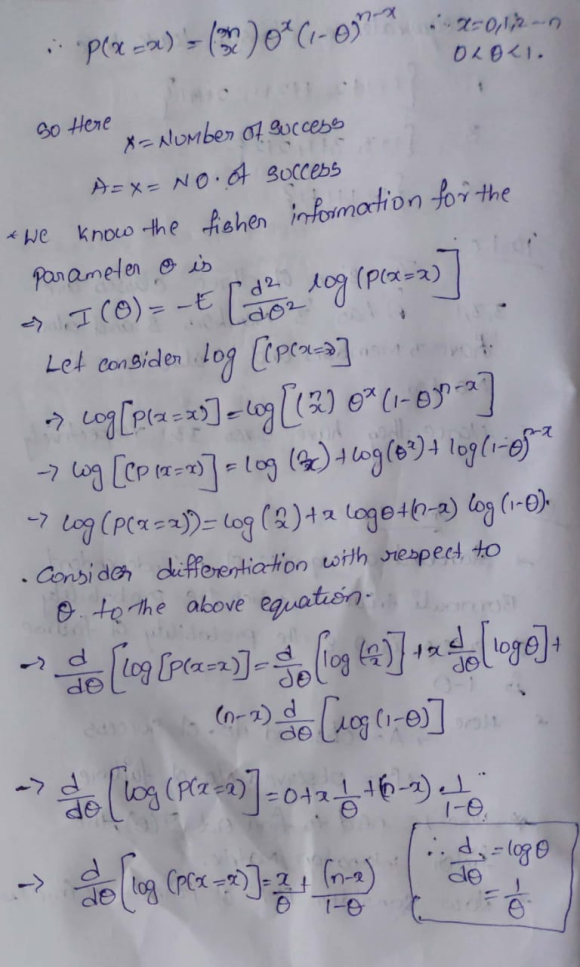 ∴ P(x=x) = (n x) θ^x (1-θ)^(n-x) ∴ x=0,1,2---n
0<θ<1.
So Here
X = Number of success
A = X = NO. of success
* We know the fisher information for the
parameter θ is
⇒ I(θ) = -E [d²/dθ² log (P(x=x)]
Let consider log [(P(x=x)]
→ log[P(x=x)] = log[(n x) θ^x (1-θ)^(n-x)]
→ log [(P(x=x)] = log (n x) + log(θ^x) + log(1-θ)^(n-x)
→ log (P(x=x)) = log (n x) + x logθ + (n-x) log (1-θ).
. Consider differentiation with respect to
θ to the above equation.
→ d/dθ [log [P(x=x)] = d/dθ [log (n/x)] + x d/dθ [logθ] +
(n-x) d/dθ [log (1-θ)]
→ d/dθ [log (P(x=x)] = 0 + x 1/θ + (n-x) . 1/1-θ
→ d/dθ [log (P(x=x)] = x/θ + (n-x)/1-θ
∴ d/dθ = logθ
= 1/θ